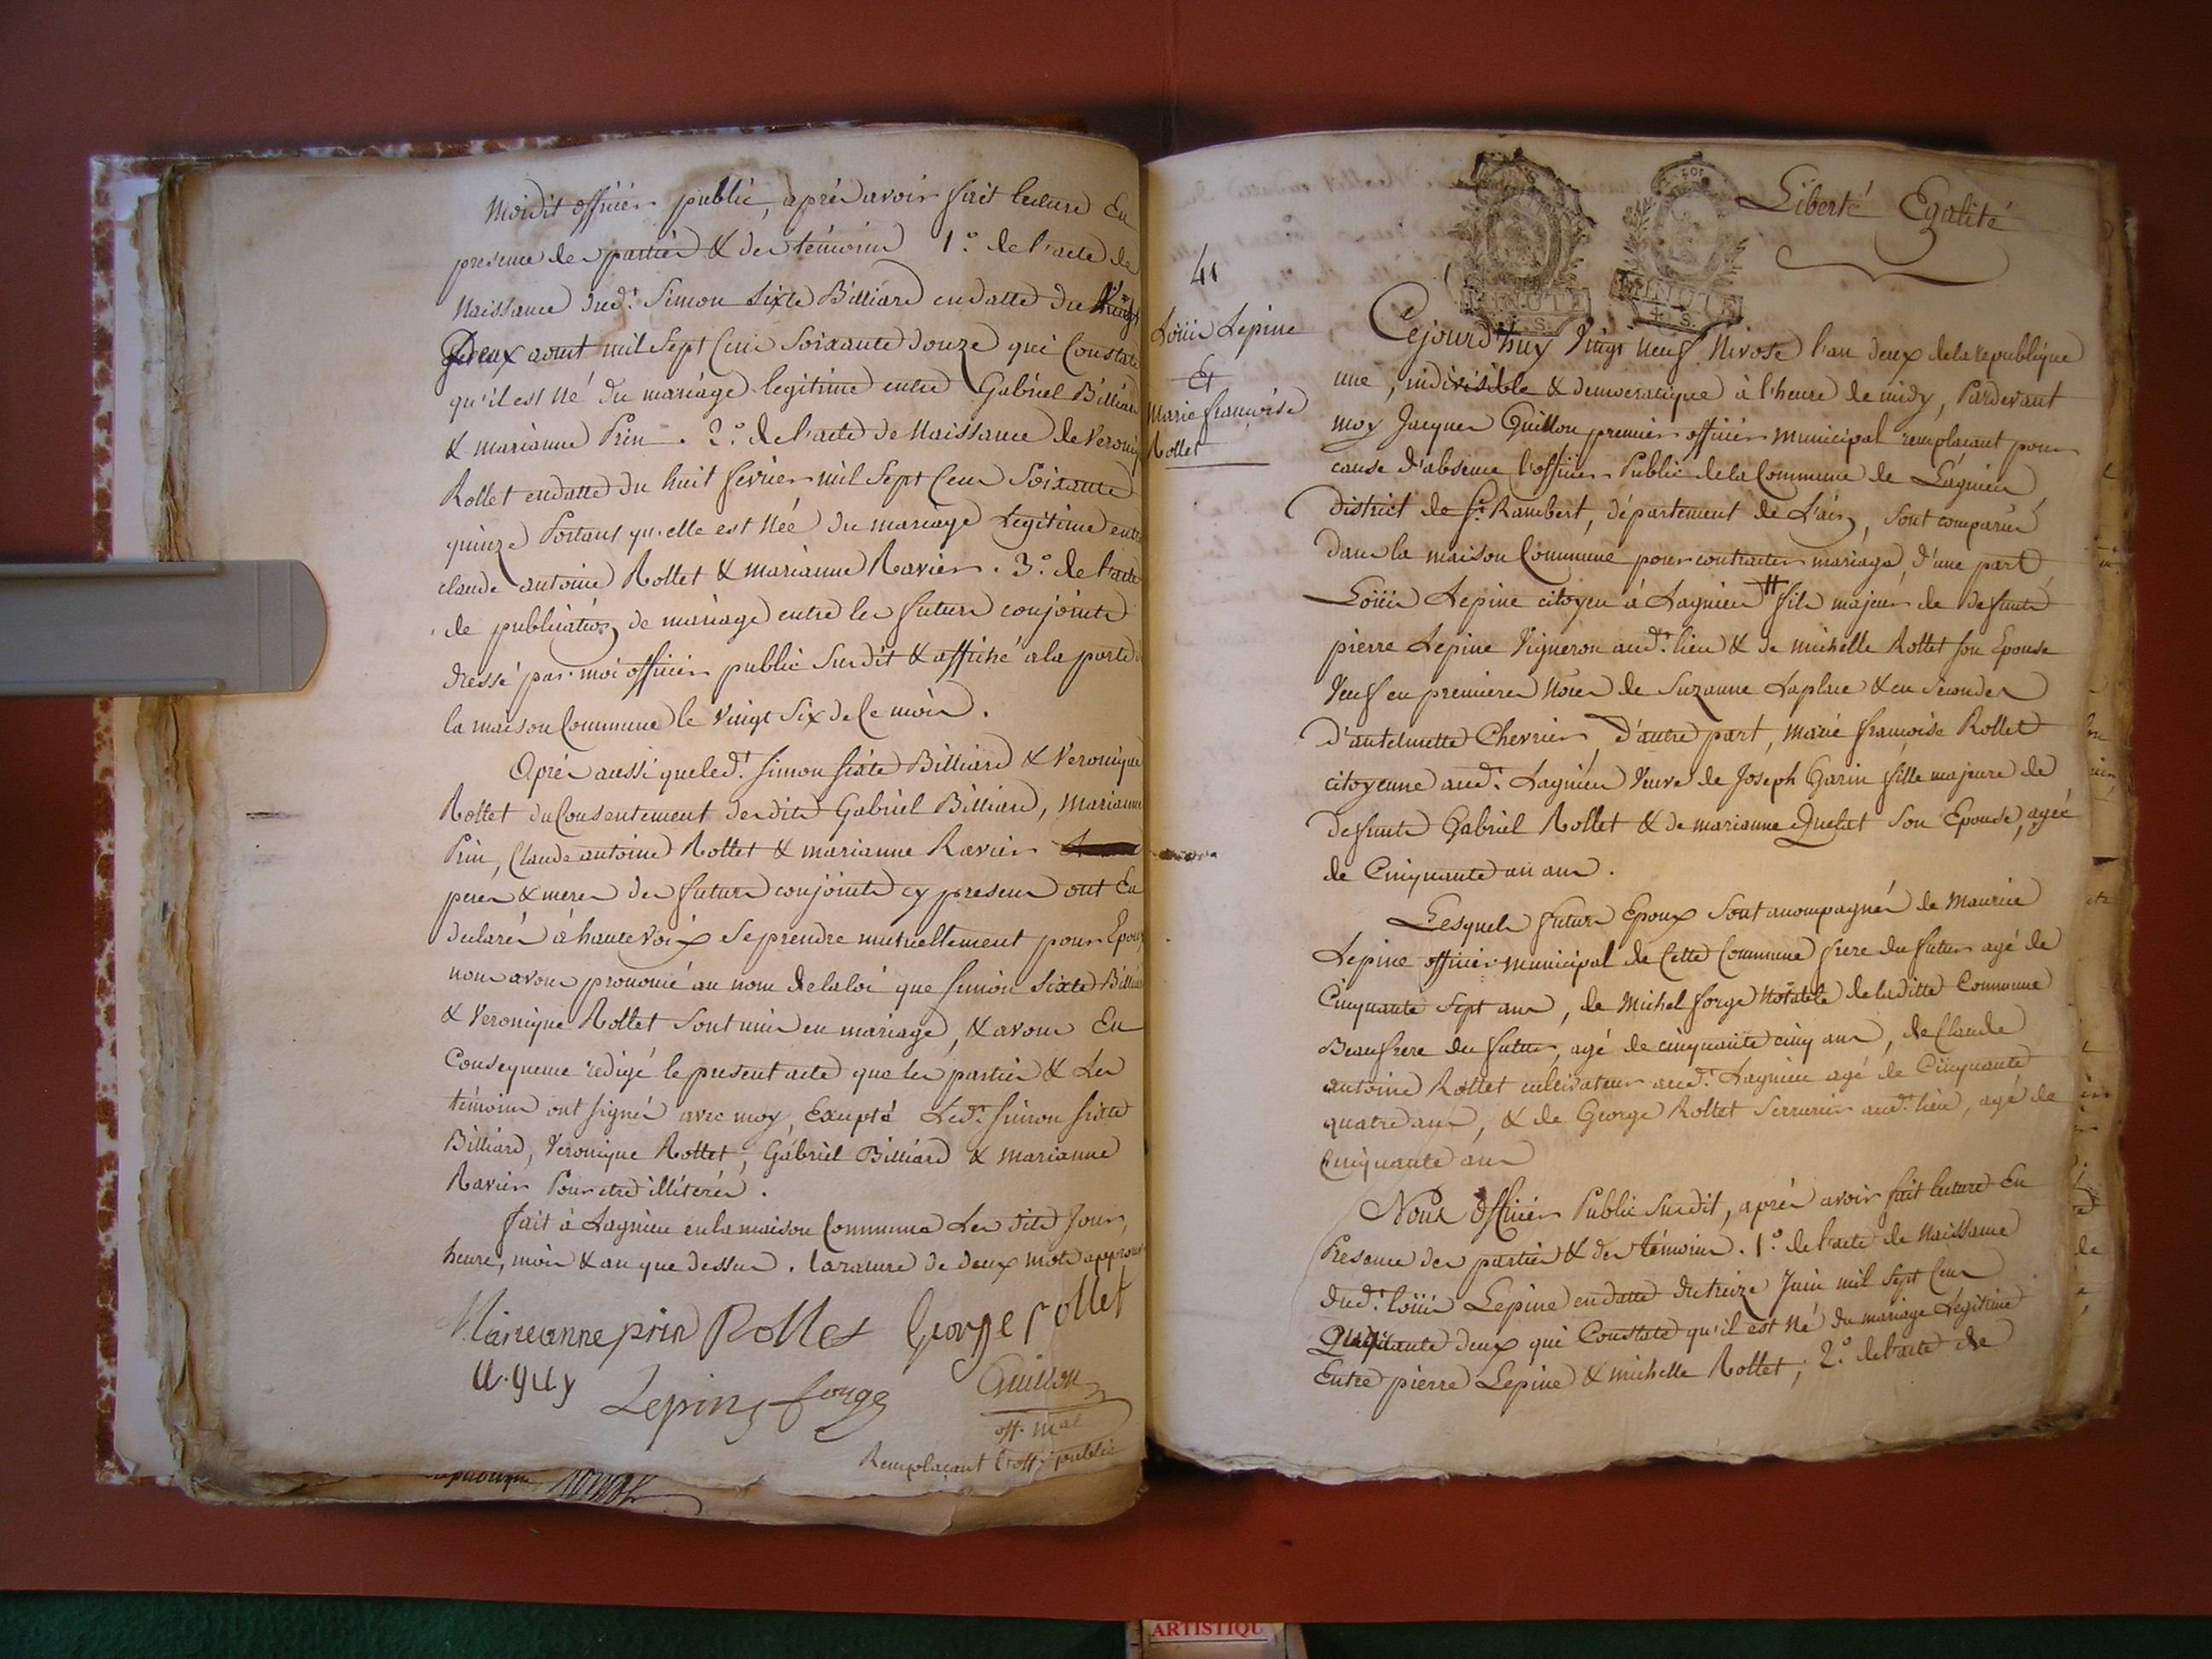 moidit officier public, après avoir fait lecture En
presence des parties & des témoins 1.º de l'acte de
Naissance dud.t Simon Sixte Billiard en datte du Vingt
Deux aout mil Sept Cent Soixante douze qui Constate
qu'il est Né du mariage legitime entre Gabriel Billiard
& marianne Prin. 2.º de l'acte de Naissance de Veroniq
Rollet en datte du huit fevrier mil Sept Cent Soixante
quinze Portant qu'elle est Née du mariage Legitime entre
claude antoine Rollet & marianne Ravier. 3.º de l'acte
de publication de mariage entre les futurs conjoints
dressé par moi officier public Susdit & affiché a la porte d
la maison Commune le Vingt Six de Ce mois.
Après aussi que led.t Simon Sixte Billiard & Veronique
Rollet du Consentement desdits Gabriel Billiard, Marianne
Prin, Claude antoine Rollet & marianne Ravier
peres & meres des futurs conjoints cy presens ont Eu
declarés à haute voix Se prendre mutuellement pour Epoux
nous avons prononcé au nom de la loi que Simon Sixte Billia
& Veronique Rollet Sont unis en mariage, & avons En
Consequence redigé le present acte que les parties & Les
témoins ont signés avec moy, Excepté Led.t Simon Sixte
Billiard, Veronique Rollet, Gabriel Billiard & marianne
Ravier Pour etre illiterés.
fait à Lagnieu en la maison Commune Les dits Jour,
heure, mois & an que dessus. la rature de deux mots approuv
Marieanne prin Rollet George rollet
u. guy Lepine forge Guillon
off. mal
Remplaçant l'off. public
Liberté Egalité
41
Loüis Lepine
Et
Marie françoise
Rollet
MINUTE
MINUTE
Cejourd'huy Vingt neuf Nivose l'an deux de la republique
une, indivisible & democratique à l'heure de midy, Pardevant
moy Jacques Guillon premier officier municipal remplaçant pour
cause d'absence l'officier Public de la Commune de Lagnieu
district de S.t Rambert, département de L'ain, Sont comparus
dans la maison Commune pour contracter mariage, d'une part
Loüis Lepine citoyen à Lagnieu # fils majeur de defunts
pierre Lepine Vigneron aud.t lieu & de michelle Rollet Son Epouse
Veuf en premieres Nôces de Suzanne Laplace & en Secondes
d'antelmette Chevrier, d'autre part, marie françoise Rollet
citoyenne aud.t Lagnieu Veuve de Joseph Garin fille majeure de
defunts Gabriel Rollet & de marianne Quelat Son Epouse, agée
de Cinquante un ans.
Lesquels futurs Epoux Sont accompagnés de Maurice
Lepine officier municipal de Cette Commune frere du futur agé de
Cinquante Sept ans, de Michel forge Notable de laditte Commune
Beaufrere du futur, agé de cinquante cinq ans, de Claude
antoine Rollet cultivateur aud.t Lagnieu agé de Cinquante
quatre ans, & de George Rollet Serrurier aud.t lieu, agé de
Cinquante ans
Nous Officier Public Susdit, après avoir fait lecture En
Presence des parties & des témoins. 1.º de l'acte de Naissance
dud.t loüis Lepine en datte du treize Juin mil Sept Cent
Quarante deux qui Constate qu'il est Né du mariage Legitime
Entre pierre Lepine & michelle Rollet; 2.º de l'acte de
ARTISTIQU